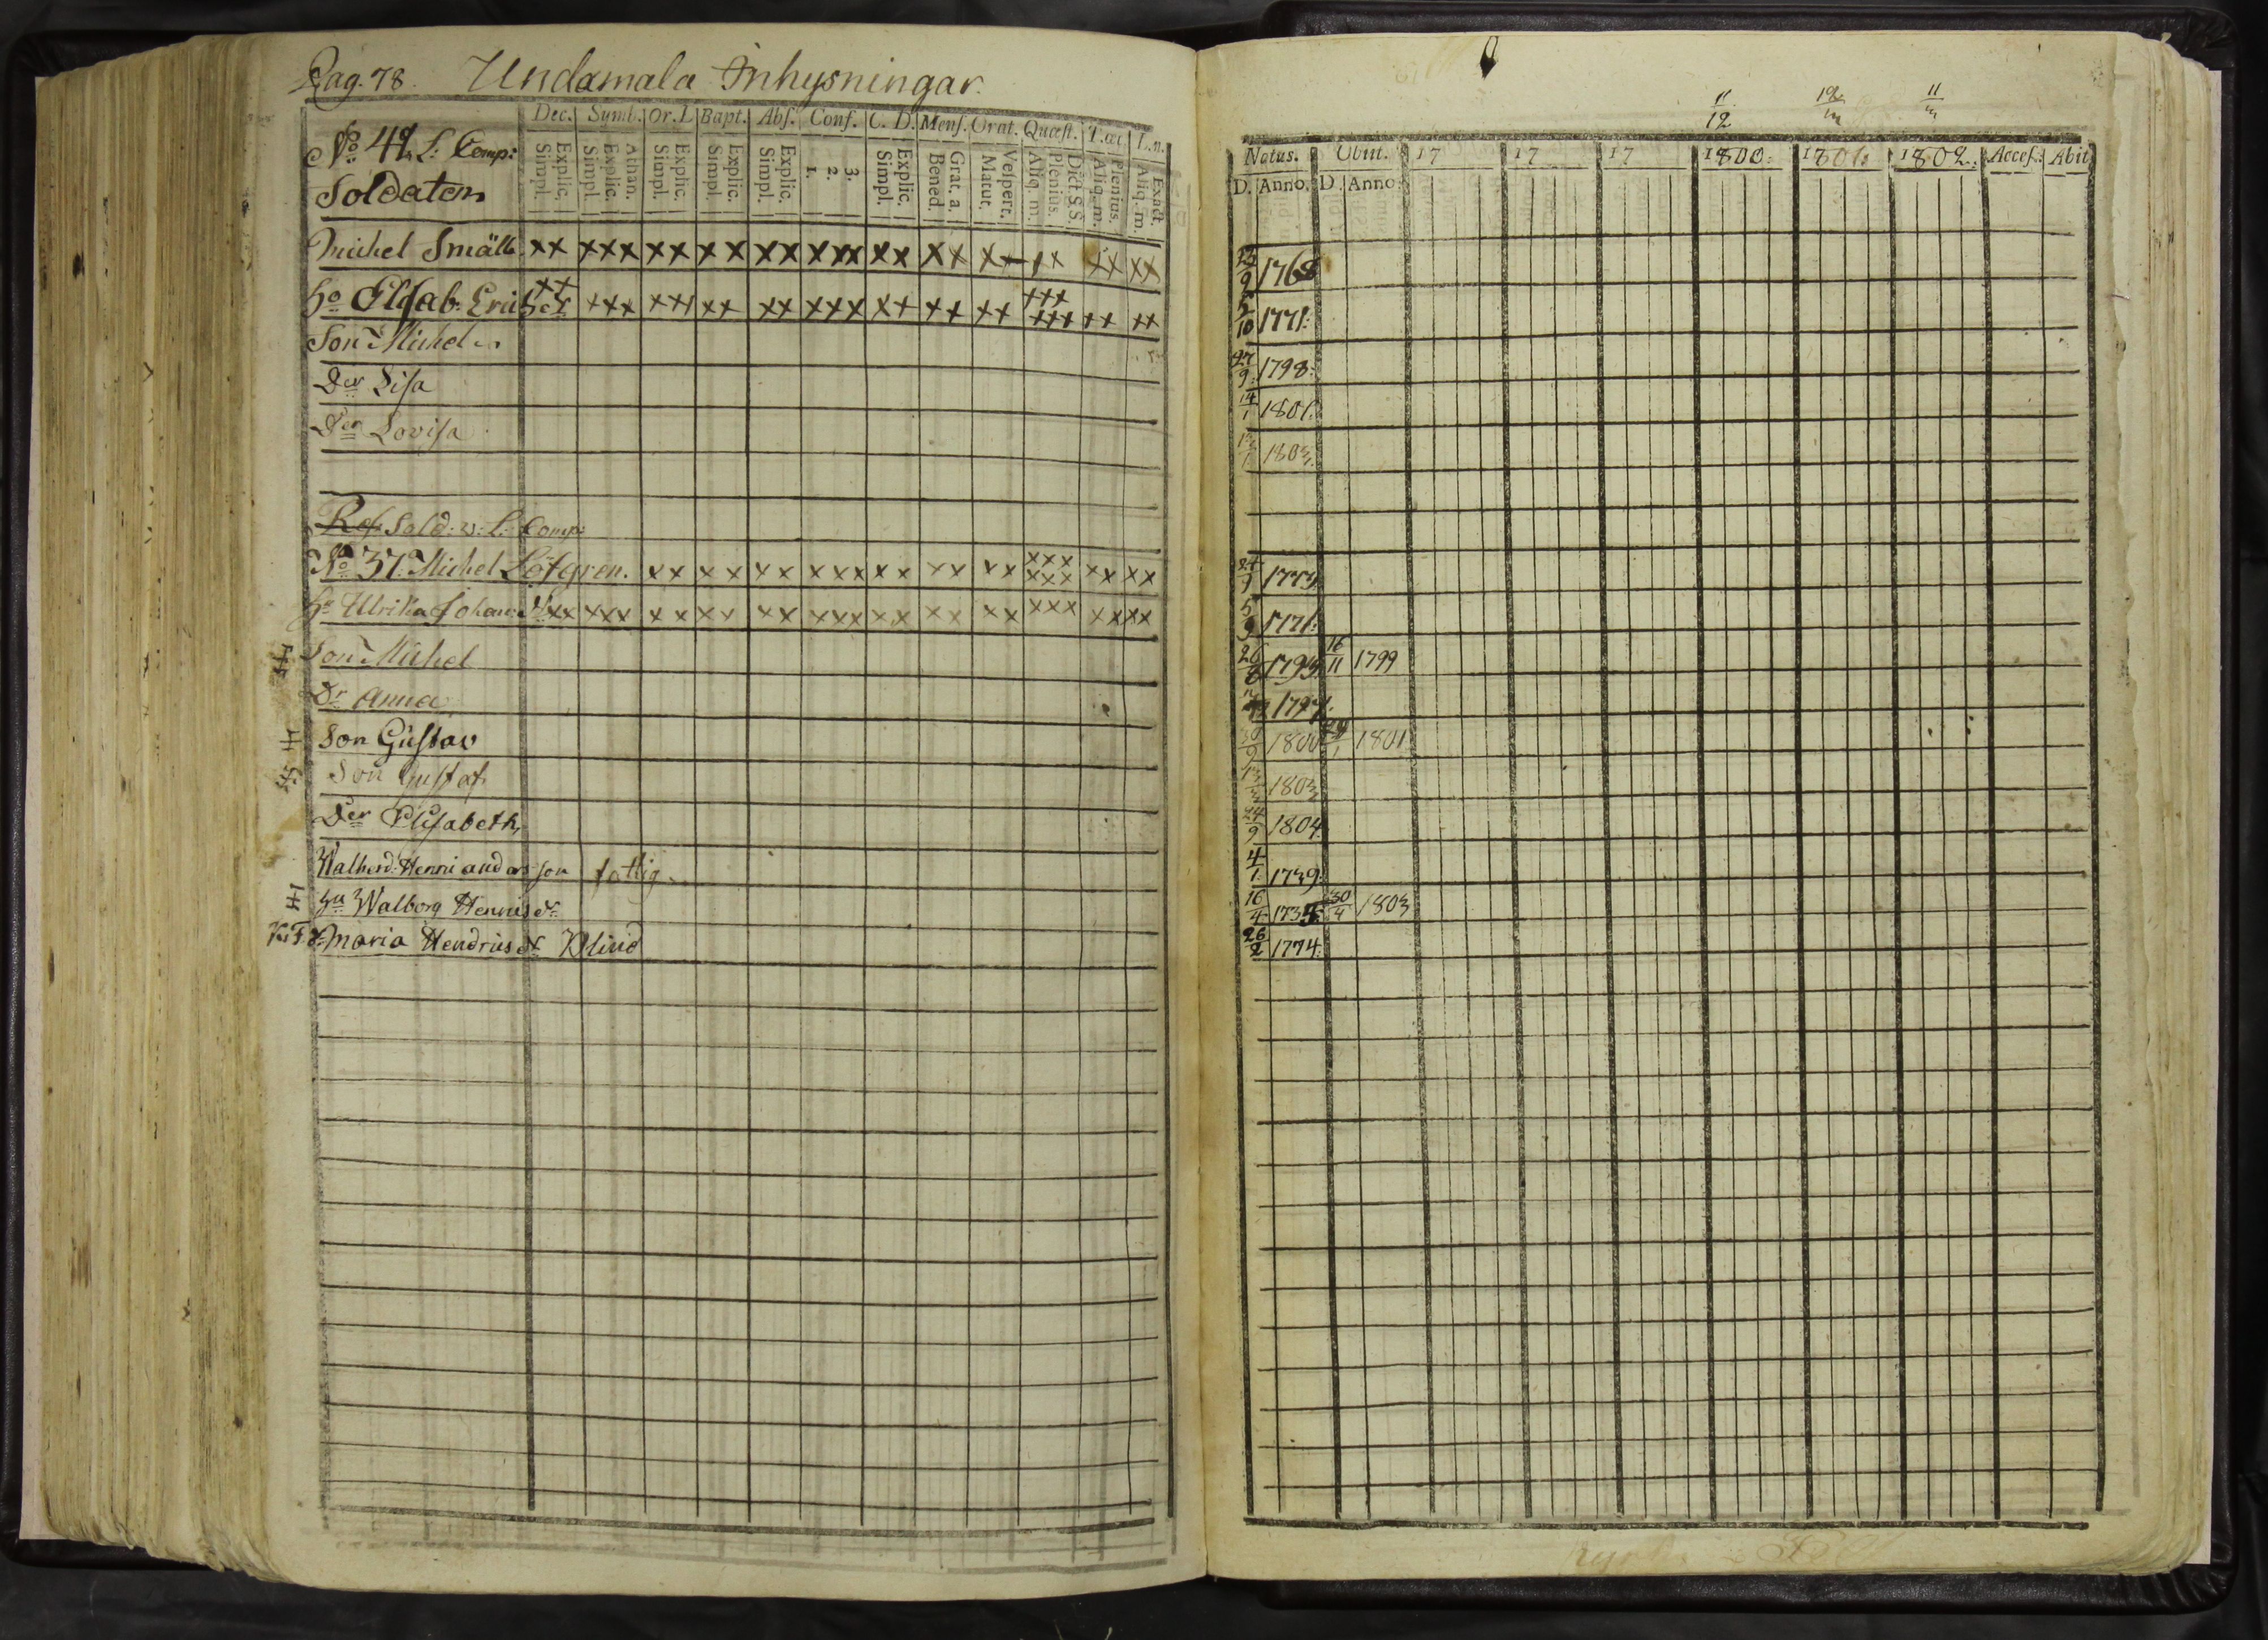 Pag. 78. Undamala Inhysningar.
Dec. Symb. Or. D. Bapt. Abs. Conf. C. D. Mens. Orat. Quæst. T. æt. L. n.
Explic. Simpl. Athan. Explic. Simpl. Explic. Simpl. Explic. Simpl. Explic. Simpl. 3. 2. 1. Explic. Simpl. Grat. a. Bened. Vesper. Matut. Dict. S.S. Plenius. Aliq. m. Plenius. Aliq. m. Exact. Aliq. m.
No 42 L: Comp:
Soldaten
Michel Smält xx xxx xx xx xx xxx xx xx xx xx xx xx
Ho Elisab. Ericsdr xx xxx xx xx xx xxx xx xx xx xxx xxx xx xx
Son Michel
Der Lisa
Der Lovisa
Ref. Sold: v. L: Comp:
No 37. Michel Löfgren. xx xx xx xxx xx xx xx xxx xxx xx xx
Ho Ulrika Johansdr xx xxx xx xx xx xxx xx xx xx xxx xx xx
Son Michel
Dr Anna
Son Gustav
Son Gustaf
Der Elisabeth
Walherd: Henri andersson fattig
Hu Walborg Hennisdr
Dr Maria Hendricsdr Blind
11/12 12/3 11/3
Natus. Obiit. 17 17 17 1800. 1801. 1802. Acces. Abit
D. Anno. D. Anno.
1768
5/10 1771.
27/9. 1798.
14/1 1801.
13/1 1803.
24/9 1773
5/9 1771.
26/8 1793. 16/11 1799
1797.
30/9 1800 24/1 1801
13/3 1803
24/9 1804
4/1. 1739.
16/4. 1735 30/4 1803
26/2 1774.